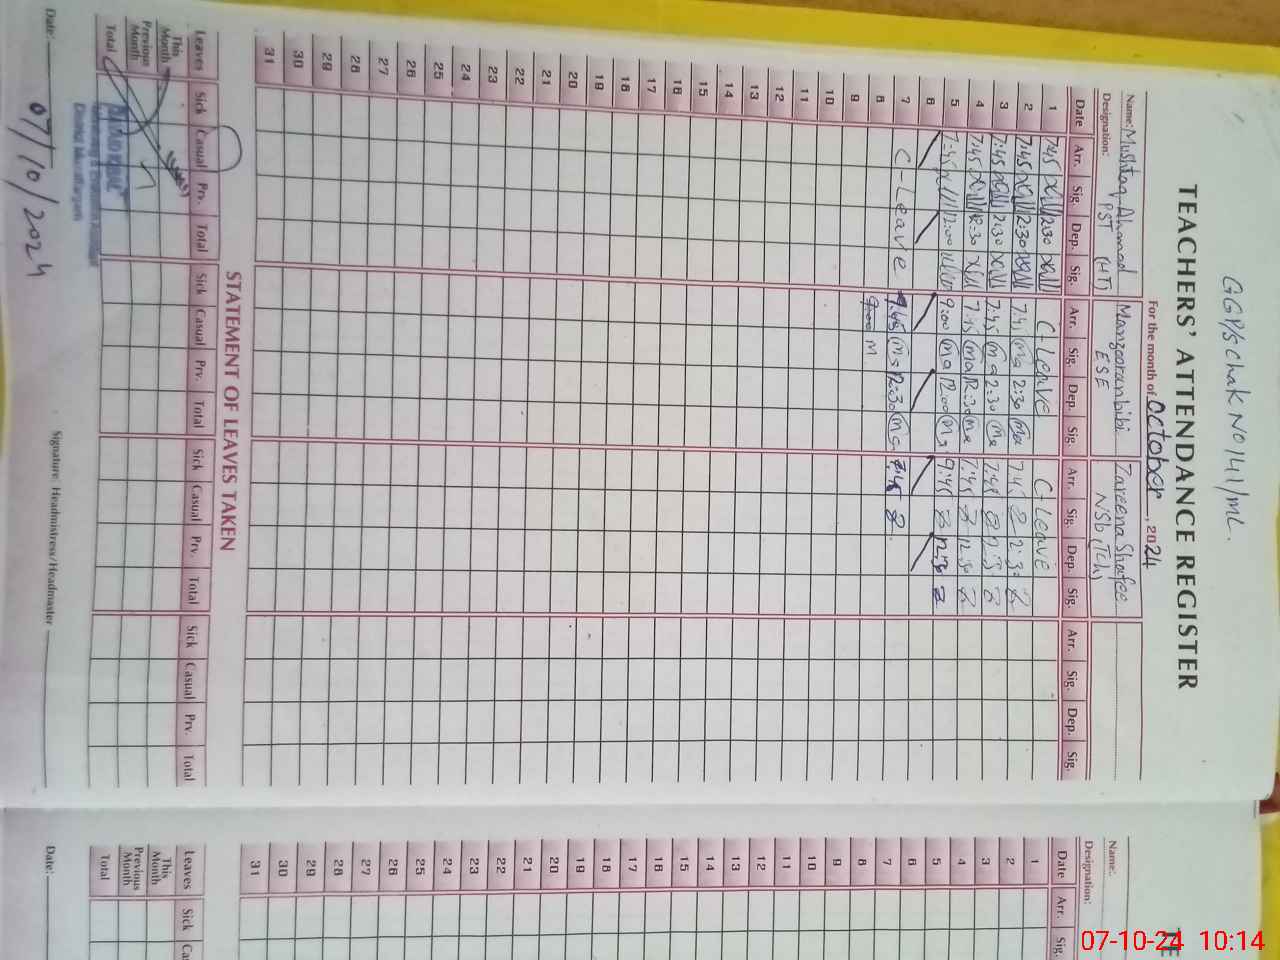 GGP/S Chak No 141/ML.
TEACHERS' ATTENDANCE REGISTER
For the month of October, 2024
Name: Mushtaq Ahmad Manzooran bibi Zareena Shafee
Designation: PST (HT) ESE NSB (Tch)
Date Arr. Sig. Dep. Sig. Arr. Sig. Dep. Sig. Arr. Sig. Dep. Sig. Arr. Sig. Dep. Sig.
1 7:45 2:30 C-Leave C-Leave
2 7:45 2:30 2:30
3 7:45 2:30 7:45 2:30
4 7:45 12:30 7:45 12:30 7:45 12:30
5 7:45 12:00 9:00 12:00 9:45 12:30
6
7 C-Leave 12:30 7:45
8 9:00 M
9
10
11
12
13
14
15
16
17
18
19
20
21
22
23
24
25
26
27
28
29
30
31
STATEMENT OF LEAVES TAKEN
Leaves Sick Casual Prv. Total Sick Casual Prv. Total Sick Casual Prv. Total Sick Casual Prv. Total
This Month
Previous Month
Total
Date: 07/10/2024 Signature: Headmistress/Headmaster
TE
Name:
Designation:
Date Arr. Sig.
1
2
3
4
5
6
7
8
9
10
11
12
13
14
15
16
17
18
19
20
21
22
23
24
25
26
27
28
29
30
31
Leaves Sick
This Month
Previous Month
Total
Date:
07-10-24 10:14